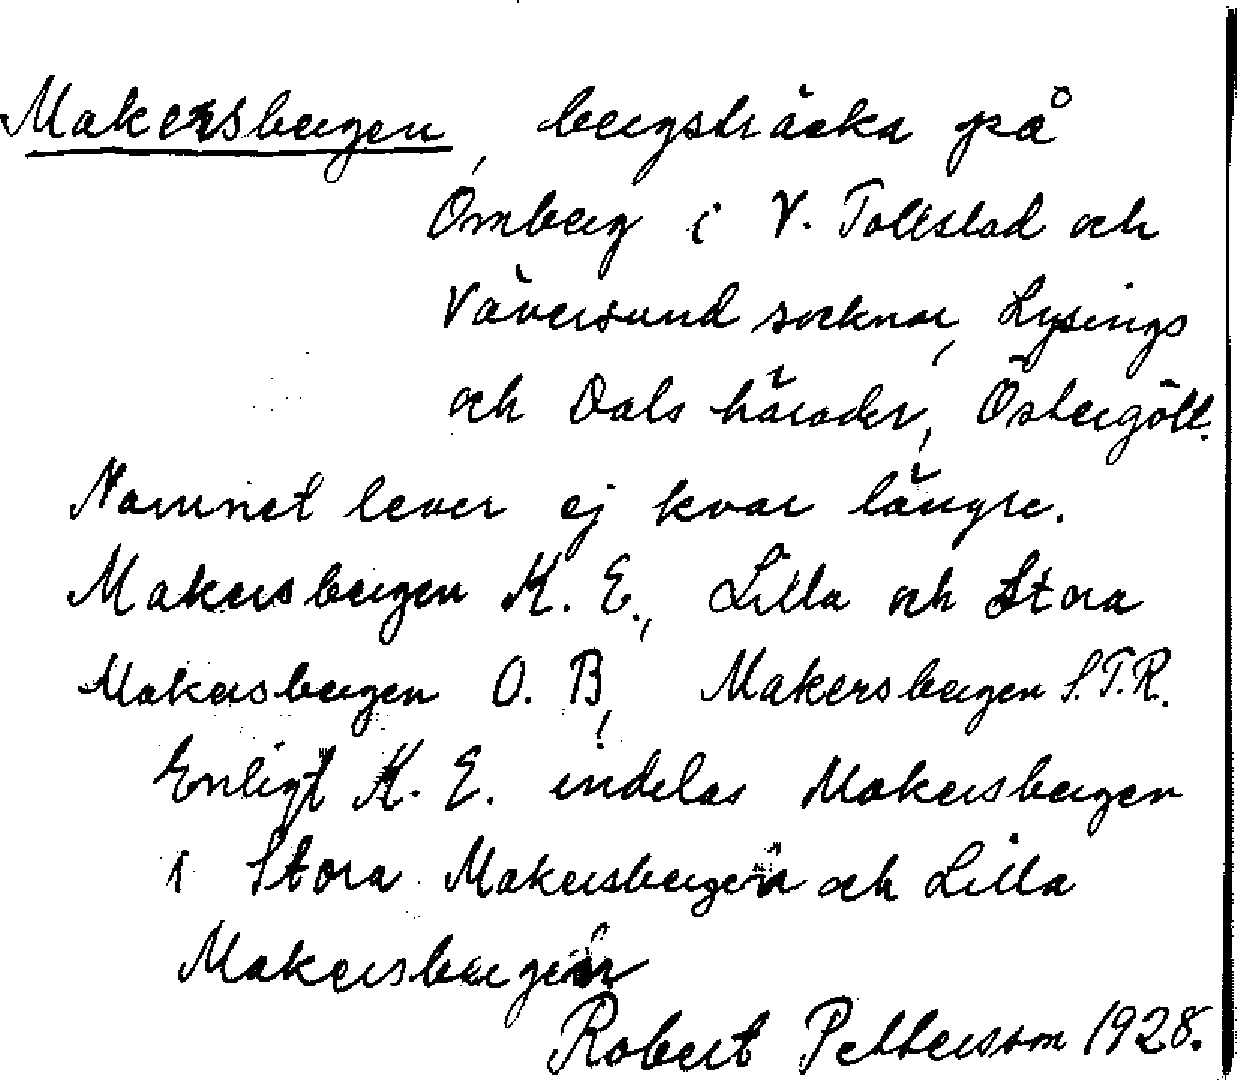 Makersbergen, bergsträcka på
Omberg i V. Tollstad och
Väversund socknar, Lysings
och Dals härader, Östergötl.
Namnet lever ej kvar längre.
Makersbergen K. E., Lilla och Stora
Makersbergen O. B, Makersbergen S.T.R.
Enligt K. E. indelas Makersbergen
i Stora Makersbergen och Lilla
Makersbergen
Robert Pettersson 1928.